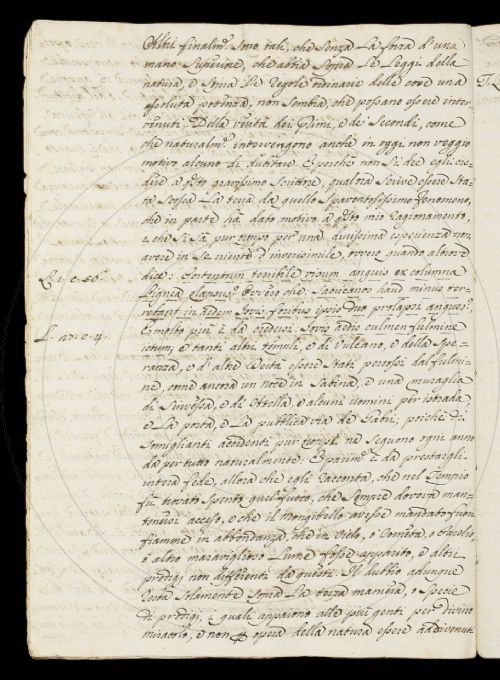 Altri finalm.e sono tali, che senza la forza d'una
mano superiore, che abbia sopra le leggi della
natura, e sopra le regole ordinarie delle cose una
assoluta potenza, non sembra, che possano essere inter-
venuti. Della verità dei primi, e de' secondi, come
che naturalm.e intervengono anche in oggi non veggio
motivo alcuno di dubitare. E perche non si dee egli cre-
dere a q.sto gravissimo scrittore, qualora scrive essere sta-
ta scossa la terra da quello spaventosissimo fenomeno,
che in parte hà dato motivo a q.sto mio ragionamento,
e che si sà pur troppo per una durissima esperienza non
avere in se niente d'inverisimile, ovvero quando altrove
dice: Portentum terribile visum anguis ex columna
L. 1. c. 56.
lignea elapsus? Ovvero che Satricanos haud minus ter-
retant in aedem Iovis foribus ipsis duo prolapsi angues?
E molto più è da credersi Iovis aedis culmen fulmine
ictum, e tanti altri templi, e di Vulcano, e della Spe-
ranza, e d'altre Deità essere stati percossi dal fulmi-
ne, come ancora un noce in Sabina, e una muraglia
di Suessa, e di Atella, e alcuni uomini per istrada,
e la porta, e la pubblica via de Gabi; poiche di
somiglianti accidenti pur troppo ne seguono ogni anno
da per tutto naturalmente. E parim.e è da prestargli
intera fede, allora che egli racconta, che nel Tempio
fù trovato spento quel fuoco, che sempre doveva man-
tenersi acceso, e che il mongibello avesse mandato fuori
fiamme in abbondanza, che in cielo, o Cometa, o
o altro maraviglioso lume fosse apparito, e altri
prodigj non differenti da questi. Il dubbio adunque
resta solamente sopra la terza maniera, o specie
di prodigi, i quali appaiono alle più genti per divino
miracolo, e non opera della natura essere addivenuti